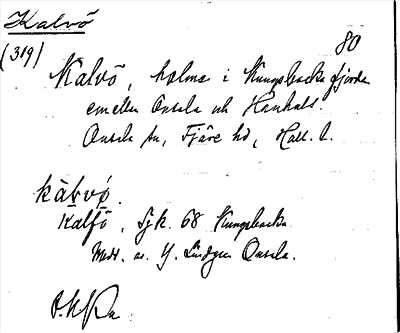 Kalvö
(319)
80
Kalvö, holme i Kungsbacka fjorden
emellan Onsala och Hanhals.
Onsala sn, Fjäre hd, Hall. l.
kàlvø.
Kalfö, Sjk. 68 Kungsbacka
Medd. av Y. Lindgren Onsala.